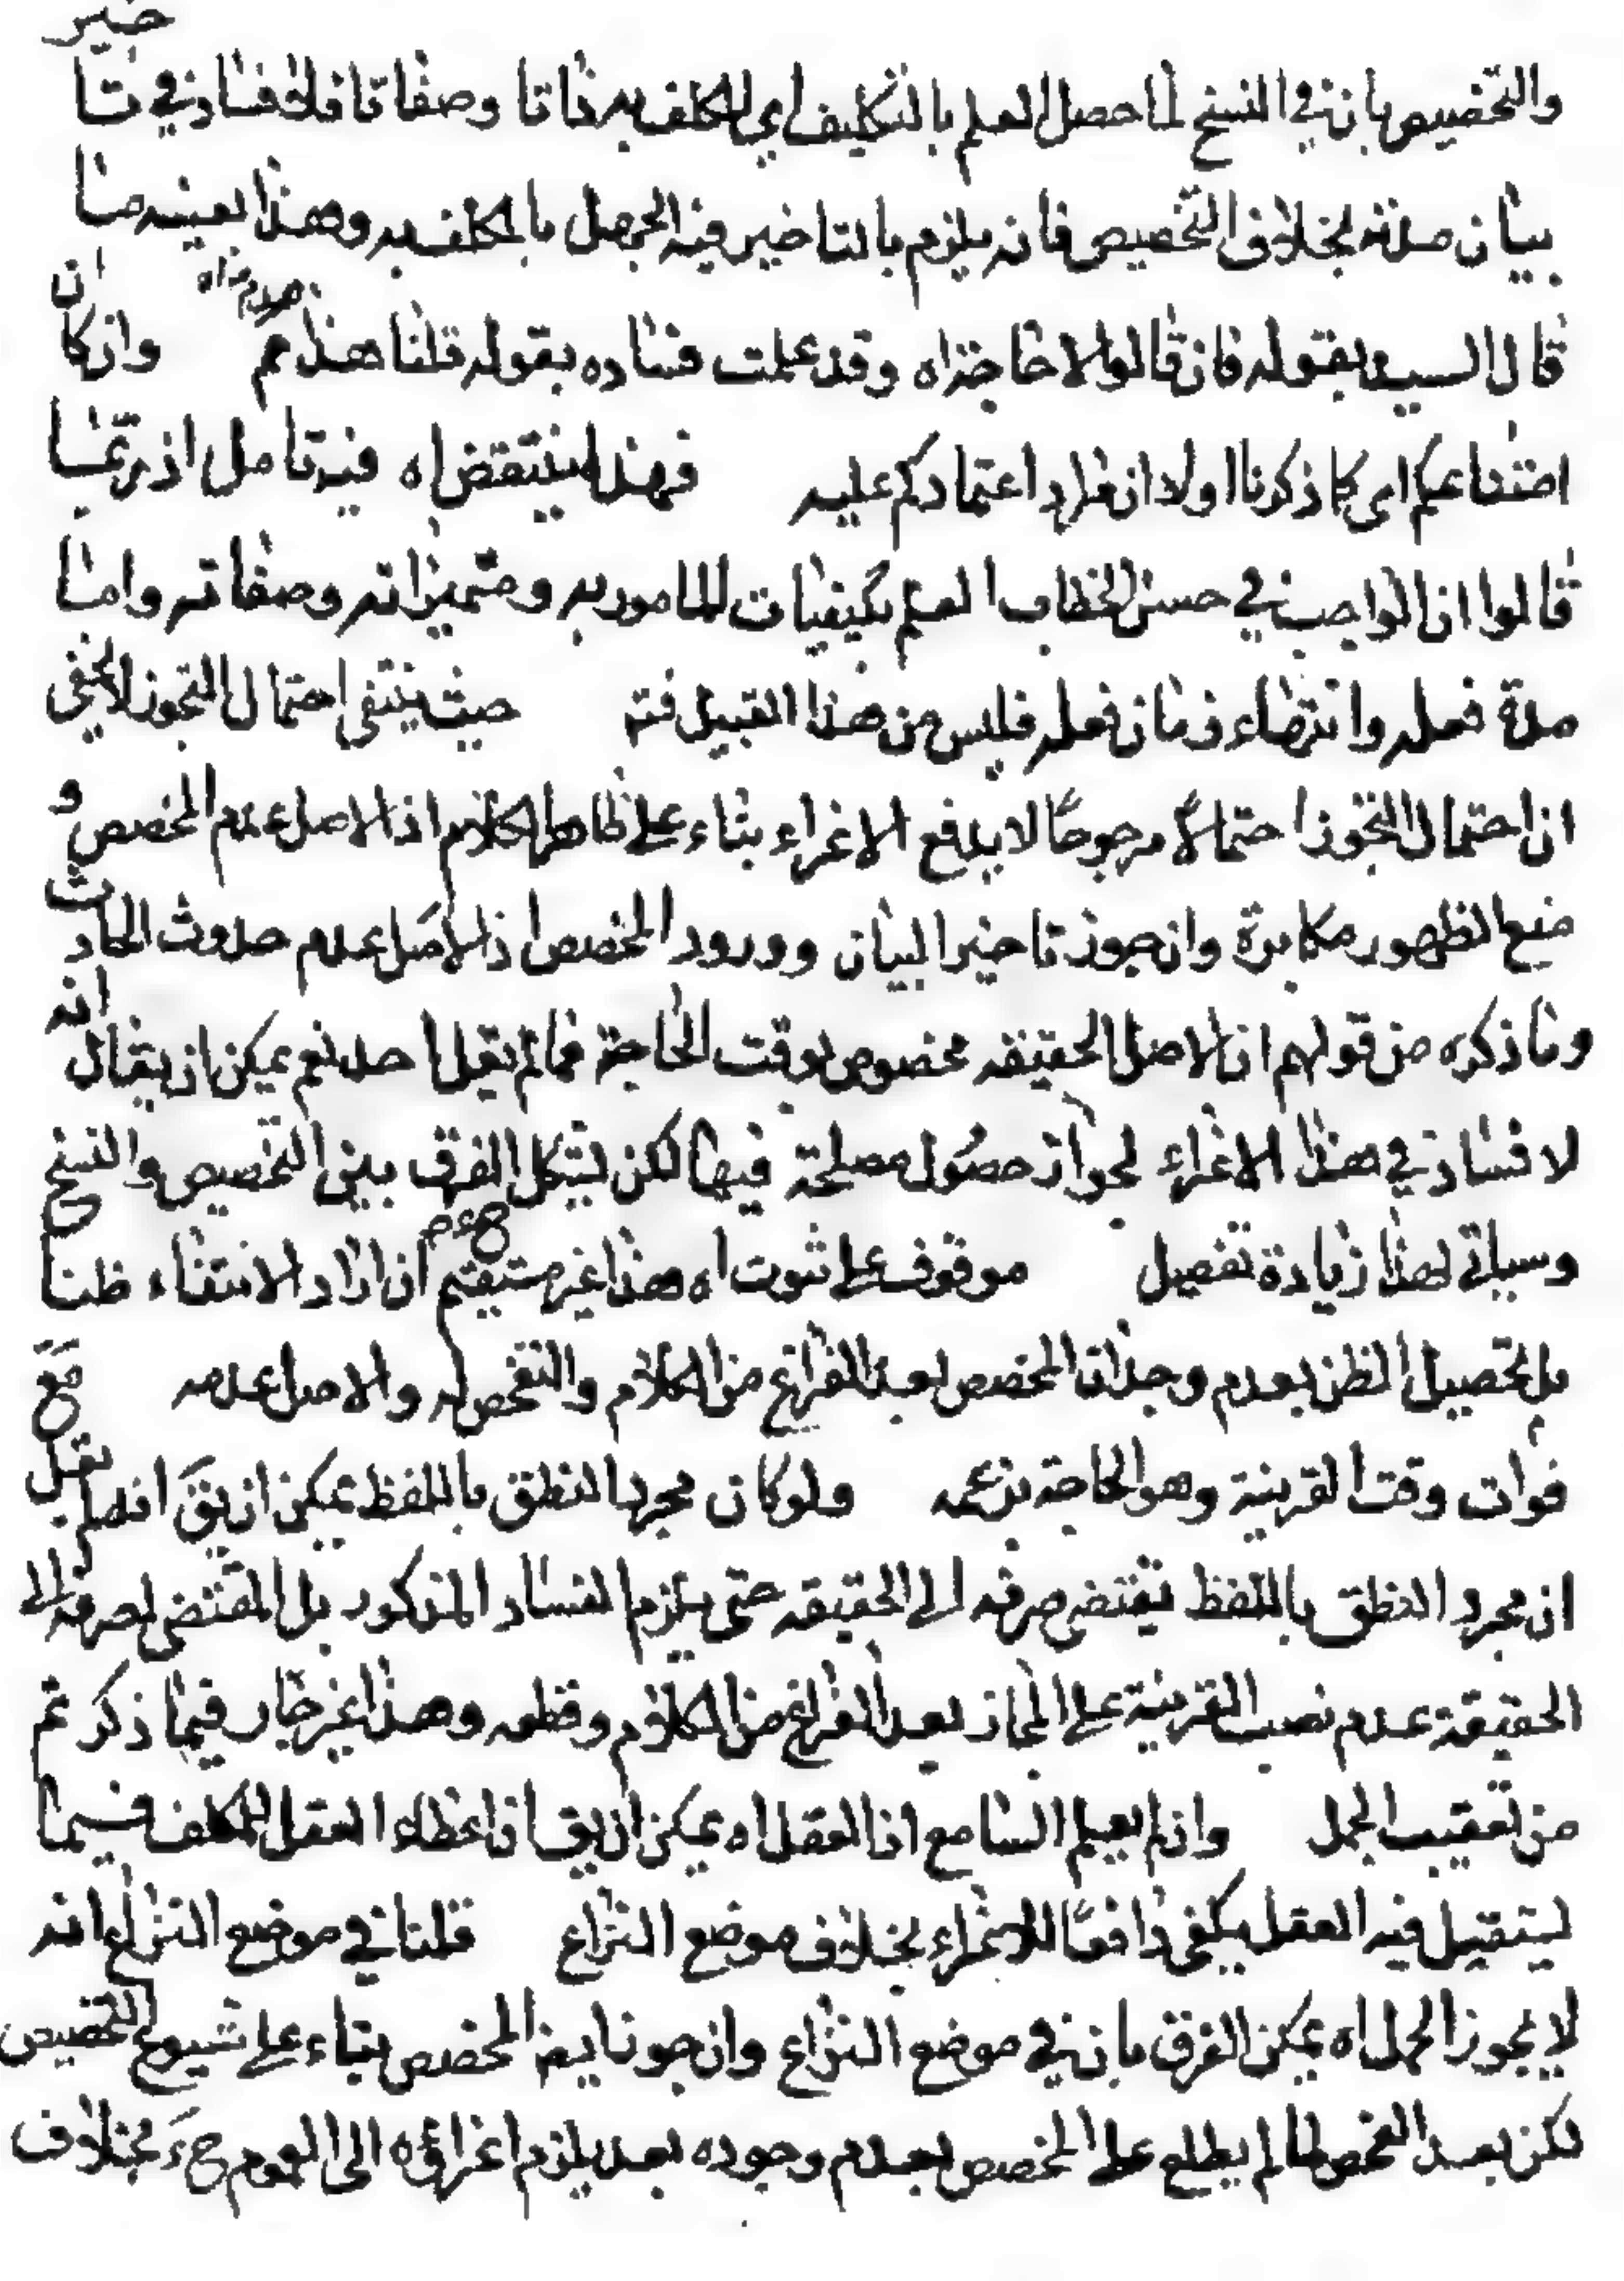 والتخصيص بان في النسخ لما حصل العلم بالتكليف اي المكلف به ذاتا وصفاتا فلا فساد في تا
خير
بيان مدته بخلاف التخصيص فانه يلزم بالتاخير فيه الجهل بالمكلف به وهذا بعينه ما
قال السيد بقوله فان قالوا لا حاجة اه وقد علمت فساده بقوله قلنا هذا هدم اه وان كا
ن
امتناعكم اى كما ذكرنا اولا ان مراد اعتمادكم عليه فهذا ينتقض اه فيه تامل اذ ربما
قالوا ان الواجب في حسن الخطاب العلم بكيفيات المامور به ومتميزاته وصفاته واما
مدة فعله وانتهاء زمان فعله فليس من هذا القبيل فتم حيث ينتفى احتمال التجوز لا يخفى
ان احتمال التجوز احتمالا مرجوحا لا يدفع الاغراء بناء على ظاهر الكلام اذ الاصل عدم المخصص و
منع الظهور مكابرة وان جوز تاخير البيان وورود المخصص اذ الاصل عدم حدوث الحاد
ث
وما ذكره من قولهم ان الاصل الحقيقه مخصوص بوقت الحاجة فمما لم يقل احد نعم يمكن ان يقال
انه
لا فساد في هذا الاغراء لجواز حصول مصلحة فيها لكن يشكل الفرق بين التخصيص والنسخ
ح
وسياتى لهذا زيادة تفصيل موقوف على ثبوت اه هذا غير مستقيم ان اراد الانتفاء ظنا
بل تحصيل الظن بعدم وجدان المخصص بعد الفراغ من الكلام والتفحص له والاصل عدمه مع
فوات وقت القرينة وهو الحاجة بزعمه ولو كان مجرد النطق باللفظ يمكن ان يق انه لم يقل
ان مجرد النطق باللفظ يقتضى صرفه الى الحقيقه حتى يلزم الفساد المذكور بل المقتضى لصرفه الى
الحقيقة عدم نصب القرينة على المجاز بعد الفراغ من الكلام وقطعه وهذا غير جار فيما ذكر ثم
من تعقيب الجمل وان لم يعلم السامع ان العقل اه يمكن ان يق ان اعطاء العقل للمكلف فيما
يستقيل فيه العقل يكفى دافعا للاغراء بخلاف موضع النزاع قلنا في موضع النزاع انه
لا يجوز الحمل اه يمكن الفرق بان في موضع النزاع وان جوزنا المخصص بناء على شيوع التخصيص
لكن بعد الفحص لما لم يطلع على المخصص بعدم وجوده بعد يلزم اغراؤه الى العموم ح بخلاف